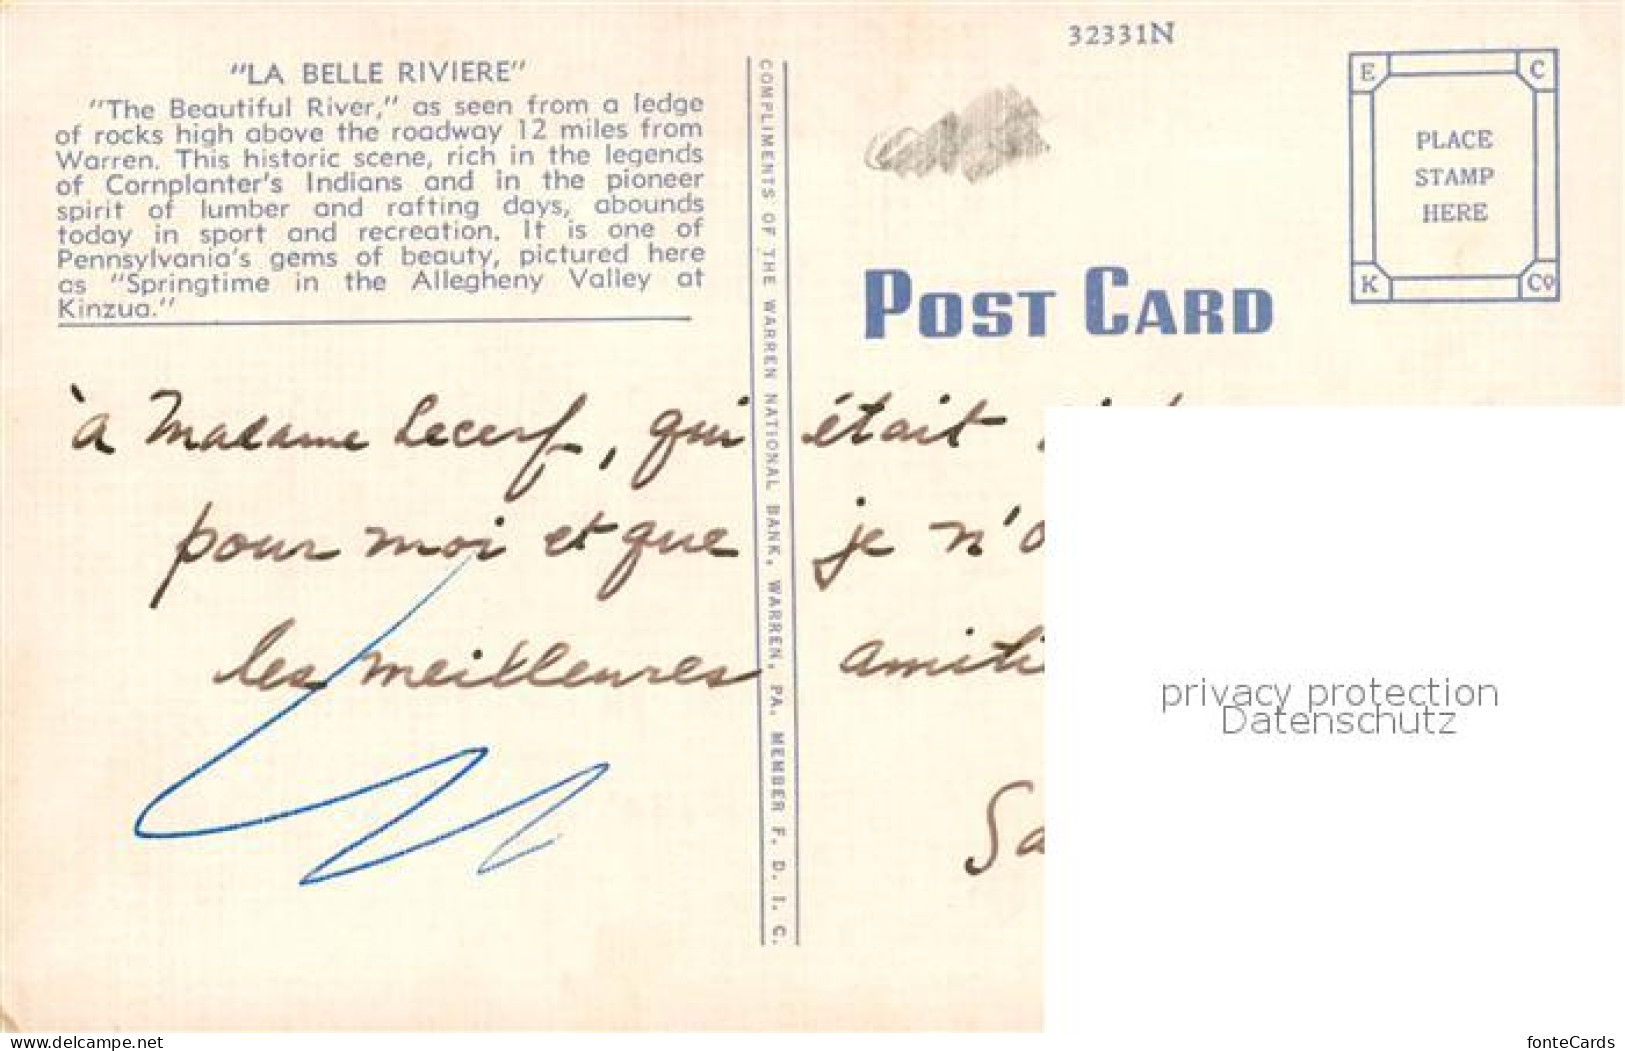 32331N
"LA BELLE RIVIERE"
"The Beautiful River," as seen from a ledge
of rocks high above the roadway 12 miles from
Warren. This historic scene, rich in the legends
of Cornplanter's Indians and in the pioneer
spirit of lumber and rafting days, abounds
today in sport and recreation. It is one of
Pennsylvania's gems of beauty, pictured here
as "Springtime in the Allegheny Valley at
Kinzua."
COMPLIMENTS OF THE WARREN NATIONAL BANK, WARREN, PA. MEMBER F. D. I. C.
E C
PLACE
STAMP
HERE
K Co
POST CARD
à Madame Lecerf, qui était
pour moi et que je n'o
les meilleures amiti
Sa
privacy protection
Datenschutz
www.delcampe.net
fonteCards